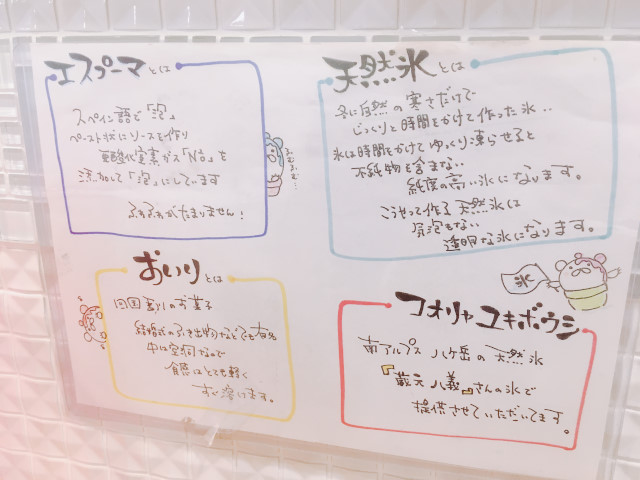 エスプーマとは
スペイン語で「泡」
ペースト状にソースを作り
亜酸化窒素ガス「N₂o」を
添加して「泡」にしています
ふわふわがたまりません！
ふむふむ…
天然氷とは
冬に自然の寒さだけで
じっくりと時間をかけて作った氷..
氷は時間をかけてゆっくり凍らせると
不純物を含まない
純度の高い氷になります。
こうやって作る天然氷は
気泡もない
透明な氷になります。
おいりとは
四国香川のお菓子
結婚式のひき出物などでも有名
中は空洞なので
食感はとても軽く
すぐ溶けます。
氷
コオリヤユキボウシ
南アルプス 八ケ岳の天然氷
『蔵元八義』さんの氷で
提供させていただいてます。